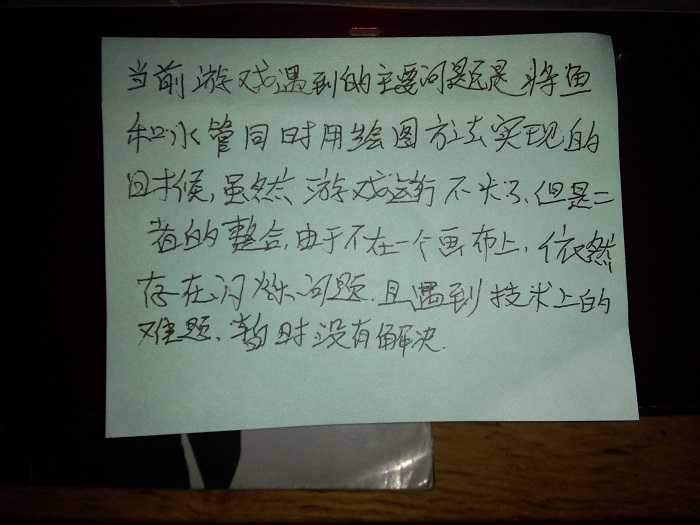 当前游戏遇到的主要问题是将鱼
和水管同时用绘图方法实现的
时候,虽然游戏运行不卡了,但是二
者的整合,由于不在一个画布上,依然
存在闪烁问题.且遇到技术上的
难题,暂时没有解决.